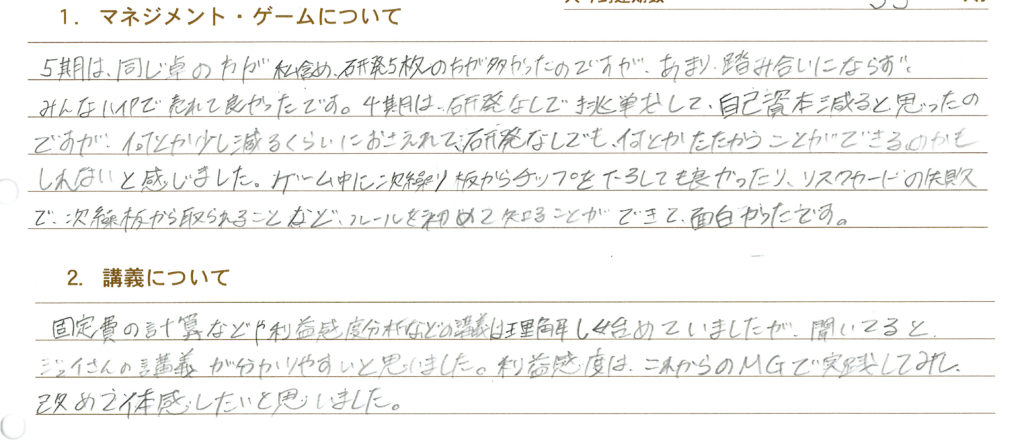 1. マネジメント・ゲームについて
5期は、同じ卓の方が私含め、研発5枚の方が多かったのですが、あまり踏み合いにならず、
みんなハイPで売れて良かったです。4期目は、研発なしで挑戦をして、自己資本減ると思ったの
ですが、何とか少し減るくらいにおさえれて、研発なしでも、何とかたたかうことができるのかも
しれないと感じました。ゲーム中に次繰り板からチップを下ろしても良かったり、リスクカードの失敗
で、次繰板から取られることなど、ルールを初めて知ることができて、面白かったです。
2. 講義について
固定費の計算などや利益感度分析などの講義は理解し始めていましたが、聞いてると、
ジェイさんの講義が分かりやすいと思いました。利益感度は、これからのMGで実践してみて、
改めて体感したいと思いました。